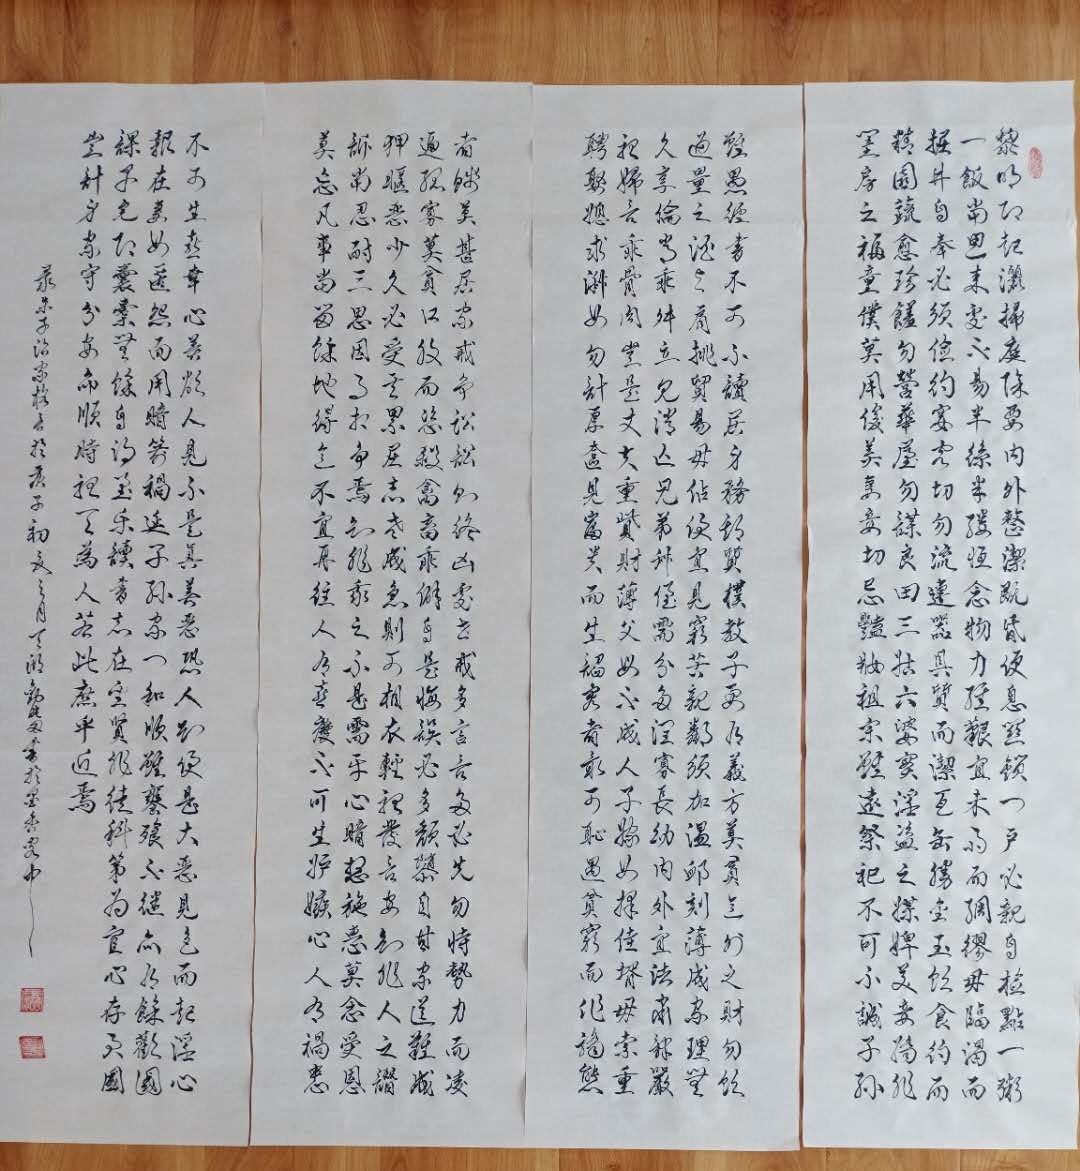 黎明即起灑掃庭除要內外整潔既昏便息關鎖門戶必親自檢點一粥
一飯當思來處不易半絲半縷恆念物力維艱宜未雨而綢繆毋臨渴而
掘井自奉必須儉約宴客切勿流連器具質而潔瓦缶勝金玉飲食約而
精園蔬愈珍饈勿營華屋勿謀良田三姑六婆實淫盜之媒婢美妾嬌非
閨房之福童僕莫用俊美妻妾切忌豔妝祖宗雖遠祭祀不可不誠子孫
雖愚經書不可不讀居身務期質樸教子要有義方莫貪意外之財勿飲
過量之酒與肩挑貿易毋佔便宜見窮苦親鄰須加溫卹刻薄成家理無
久享倫常乖舛立見消亡兄弟叔侄需分多潤寡長幼內外宜法肅辭嚴
聽婦言乖骨肉豈是丈夫重貲財薄父母不成人子嫁女擇佳婿毋索重
聘娶媳求淑女勿計厚奩見富貴而生諂容者最可恥遇貧窮而作驕態
者賤莫甚居家戒爭訟訟則終凶處世戒多言言多必失勿恃勢力而凌
逼孤寡莫貪口腹而恣殺禽畜乖僻自是悔誤必多頹隳自甘家道難成
狎暱惡少久必受其累屈志老成急則可相衣輕聽發言安知非人之譖
訴當忍耐三思因事相爭焉知非我之不是需平心暗想施惠莫念受恩
莫忘凡事當留餘地得意不宜再往人有喜慶不可生妒嫉心人有禍患
不可生喜幸心善欲人見不是真善惡恐人知便是大惡見色而起淫心
報在妻女匿怨而用暗箭禍延子孫家門和順雖饔飧不繼亦有餘歡國
課早完即囊橐無餘自得至樂讀書志在聖賢非徒科第為官心存君國
豈計身家守分安命順時聽天為人若此庶乎近焉
錄朱子治家格言於庚子初夏之月 書於墨香閣中